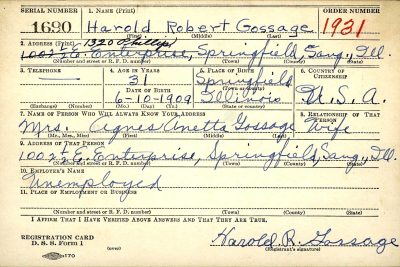 SERIAL NUMBER 1. NAME (Print) ORDER NUMBER
1690 Harold Robert Gossage 1931
(First) (Middle) (Last)
2. ADDRESS (Print) 1320 Phillips
1002½ E. Enterprise, Springfield, Sang., Ill.
(Number and street or R. F. D. number) (Town) (County) (State)
3. TELEPHONE 4. AGE IN YEARS 5. PLACE OF BIRTH 6. COUNTRY OF CITIZENSHIP
— 31 Springfield
DATE OF BIRTH (Town or county)
6-10-1909 Illinois U.S.A.
(Exchange) (Number) (Mo.) (Day) (Yr.) (State or country)
7. NAME OF PERSON WHO WILL ALWAYS KNOW YOUR ADDRESS 8. RELATIONSHIP OF THAT PERSON
Mrs. Agnes Anetta Gossage Wife
(Mr., Mrs., Miss) (First) (Middle) (Last)
9. ADDRESS OF THAT PERSON
1002½ E. Enterprise, Springfield, Sang., Ill.
(Number and street or R. F. D. number) (Town) (County) (State)
10. EMPLOYER'S NAME
Unemployed
11. PLACE OF EMPLOYMENT OR BUSINESS
(Number and street or R. F. D. number) (Town) (County) (State)
I AFFIRM THAT I HAVE VERIFIED ABOVE ANSWERS AND THAT THEY ARE TRUE.
REGISTRATION CARD
D. S. S. Form 1 (over) Harold R. Gossage
(Registrant's signature)